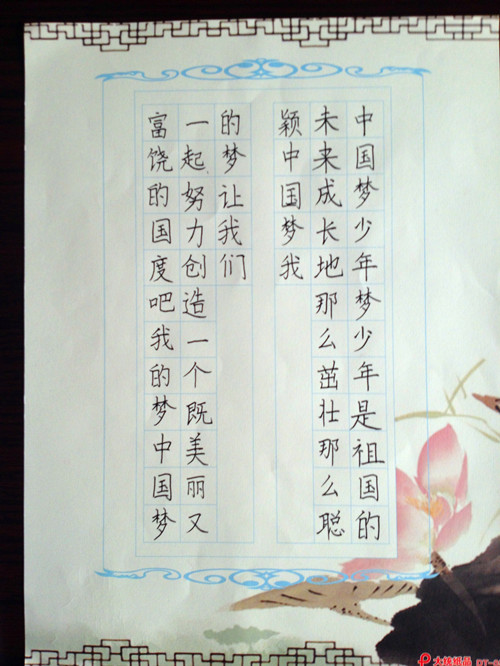 中国梦少年梦少年是祖国的
未来成长地那么茁壮那么聪
颖中国梦我
的梦让我们
一起努力创造一个既美丽又
富饶的国度吧我的梦中国梦